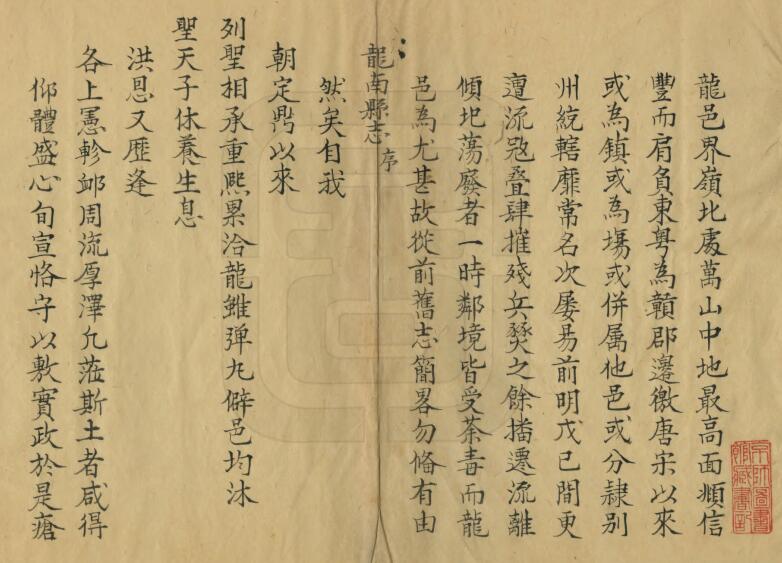 龍邑界嶺北處萬山中地最高面頫信
豐而肩負東粤為贛郡邊徼唐宋以來
或為鎮或為場或併属他邑或分隷别
州統轄靡常名次屡易前明戊己間更
遭流宼叠肆摧殘兵燹之餘播遷流離
傾圯蕩廢者一時鄰境皆受荼毒而龍
邑為尤甚故從前舊志簡畧勿俻有由
龍南縣志 序
然矣自我
朝定鼎以來
列聖相承重熈累洽龍雖弹丸僻邑均沐
聖天子休養生息
洪恩又歷逢
各上憲軫䘏周流厚澤凢蒞斯土者咸得
仰體盛心旬宣恪守以敷實政於是瘡
京師圖書
館藏書記